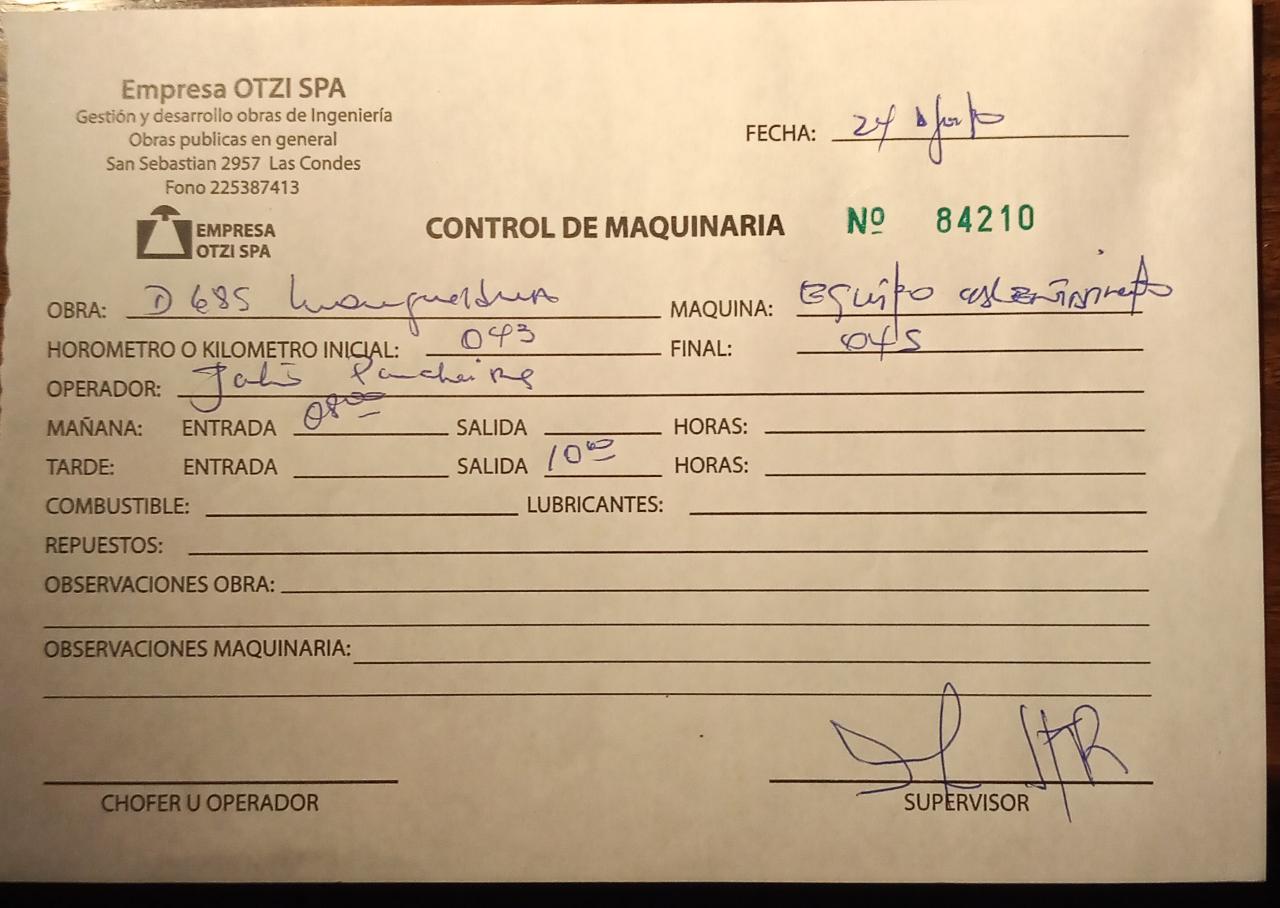 Empresa OTZI SPA
Gestión y desarrollo obras de Ingeniería
Obras publicas en general
San Sebastian 2957 Las Condes
Fono 225387413
EMPRESA
OTZI SPA
FECHA: 24 Agosto
CONTROL DE MAQUINARIA Nº 84210
OBRA: D 685 MAQUINA: Equipo
HOROMETRO O KILOMETRO INICIAL: 043 FINAL: 045
OPERADOR:
MAÑANA: ENTRADA 08:00 SALIDA HORAS:
TARDE: ENTRADA SALIDA 10:00 HORAS:
COMBUSTIBLE: LUBRICANTES:
REPUESTOS:
OBSERVACIONES OBRA:
OBSERVACIONES MAQUINARIA:
CHOFER U OPERADOR SUPERVISOR